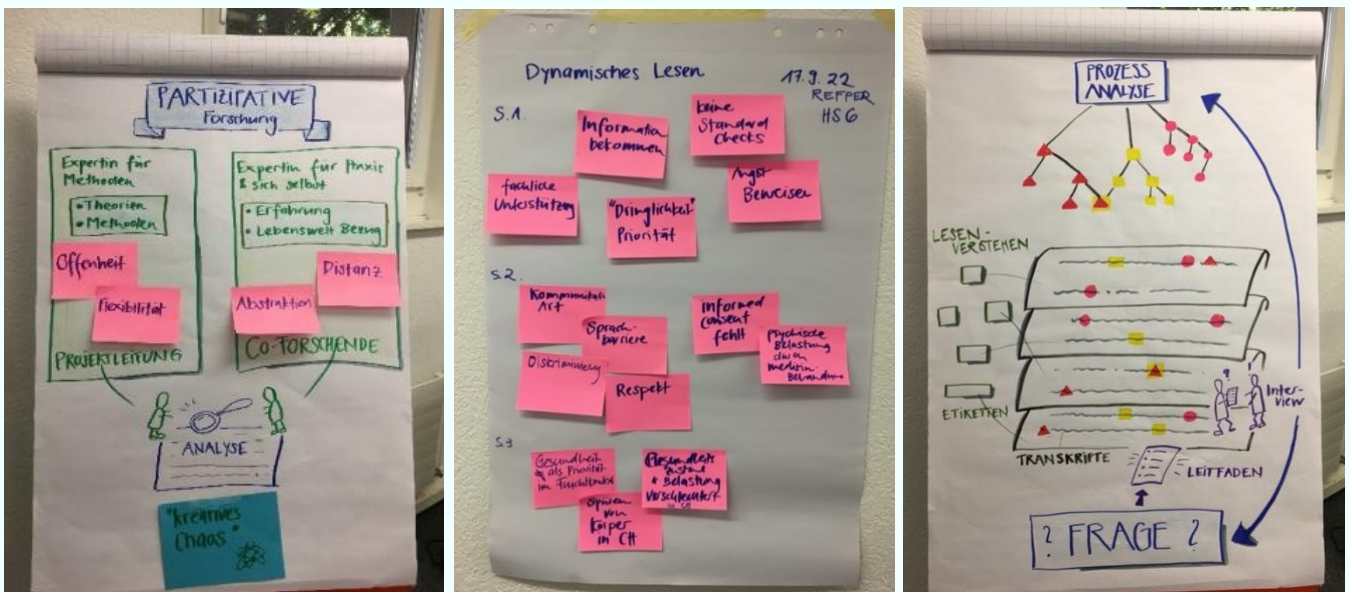 PARTIZIPATIVE
Forschung
Expertin für
Methoden
• Theorien
• Methoden
Offenheit
Flexibilität
PROJEKTLEITUNG
Expertin für Praxis
& sich selbst
• Erfahrung
• Lebenswelt Bezug
Distanz
Abstraktion
CO-FORSCHENDE
ANALYSE
"kreatives
Chaos"
Dynamisches Lesen
17.9.22
REFPER
HSG
S.1.
Information
bekommen
keine
Standard
Checks
fachliche
Unterstützung
"Dringlichkeit"
Priorität
Angst
Beweisen
S.2.
Art
Sprach-
barriere
Diskriminierung
Respekt
Informed
Consent
fehlt
Psychische
Belastung
durch
medizin.
S.3
Gesundheit
als Priorität
im
Spüren
von
Körper
in CH
Gesundheits
& Belastung
verschlechtert
in CH
PROZESS
ANALYSE
LESEN-
VERSTEHEN
ETIKETTEN
TRANSKRIPTE
Inter-
view
LEITFADEN
? FRAGE ?